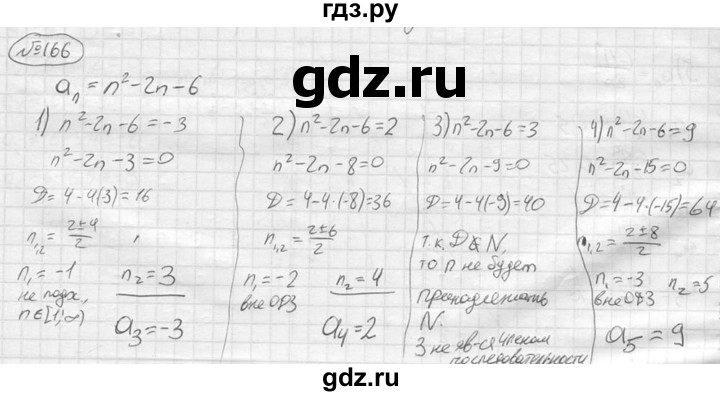 гдз.ру
№166
gdz.ru
aₙ = n² - 2n - 6
1) n² - 2n - 6 = -3
n² - 2n - 3 = 0
D = 4 - 4(3) = 16
n₁,₂ = (2 ± 4)/2
n₁ = -1 n₂ = 3
не подх,
n ∈ [1; ∞)
a₃ = -3
2) n² - 2n - 6 = 2
n² - 2n - 8 = 0
D = 4 - 4·(-8) = 36
n₁,₂ = (2 ± 6)/2
n₁ = -2 n₂ = 4
вне ОДЗ
a₄ = 2
3) n² - 2n - 6 = 3
n² - 2n - 9 = 0
D = 4 - 4(-9) = 40
т.к. D ∉ N,
то n не будет
принадлежать
N.
3 не яв-ся членом
последовательности
4) n² - 2n - 6 = 9
n² - 2n - 15 = 0
D = 4 - 4·(-15) = 64
n₁,₂ = (2 ± 8)/2
n₁ = -3 n₂ = 5
вне ОДЗ
a₅ = 9
gdz.ru